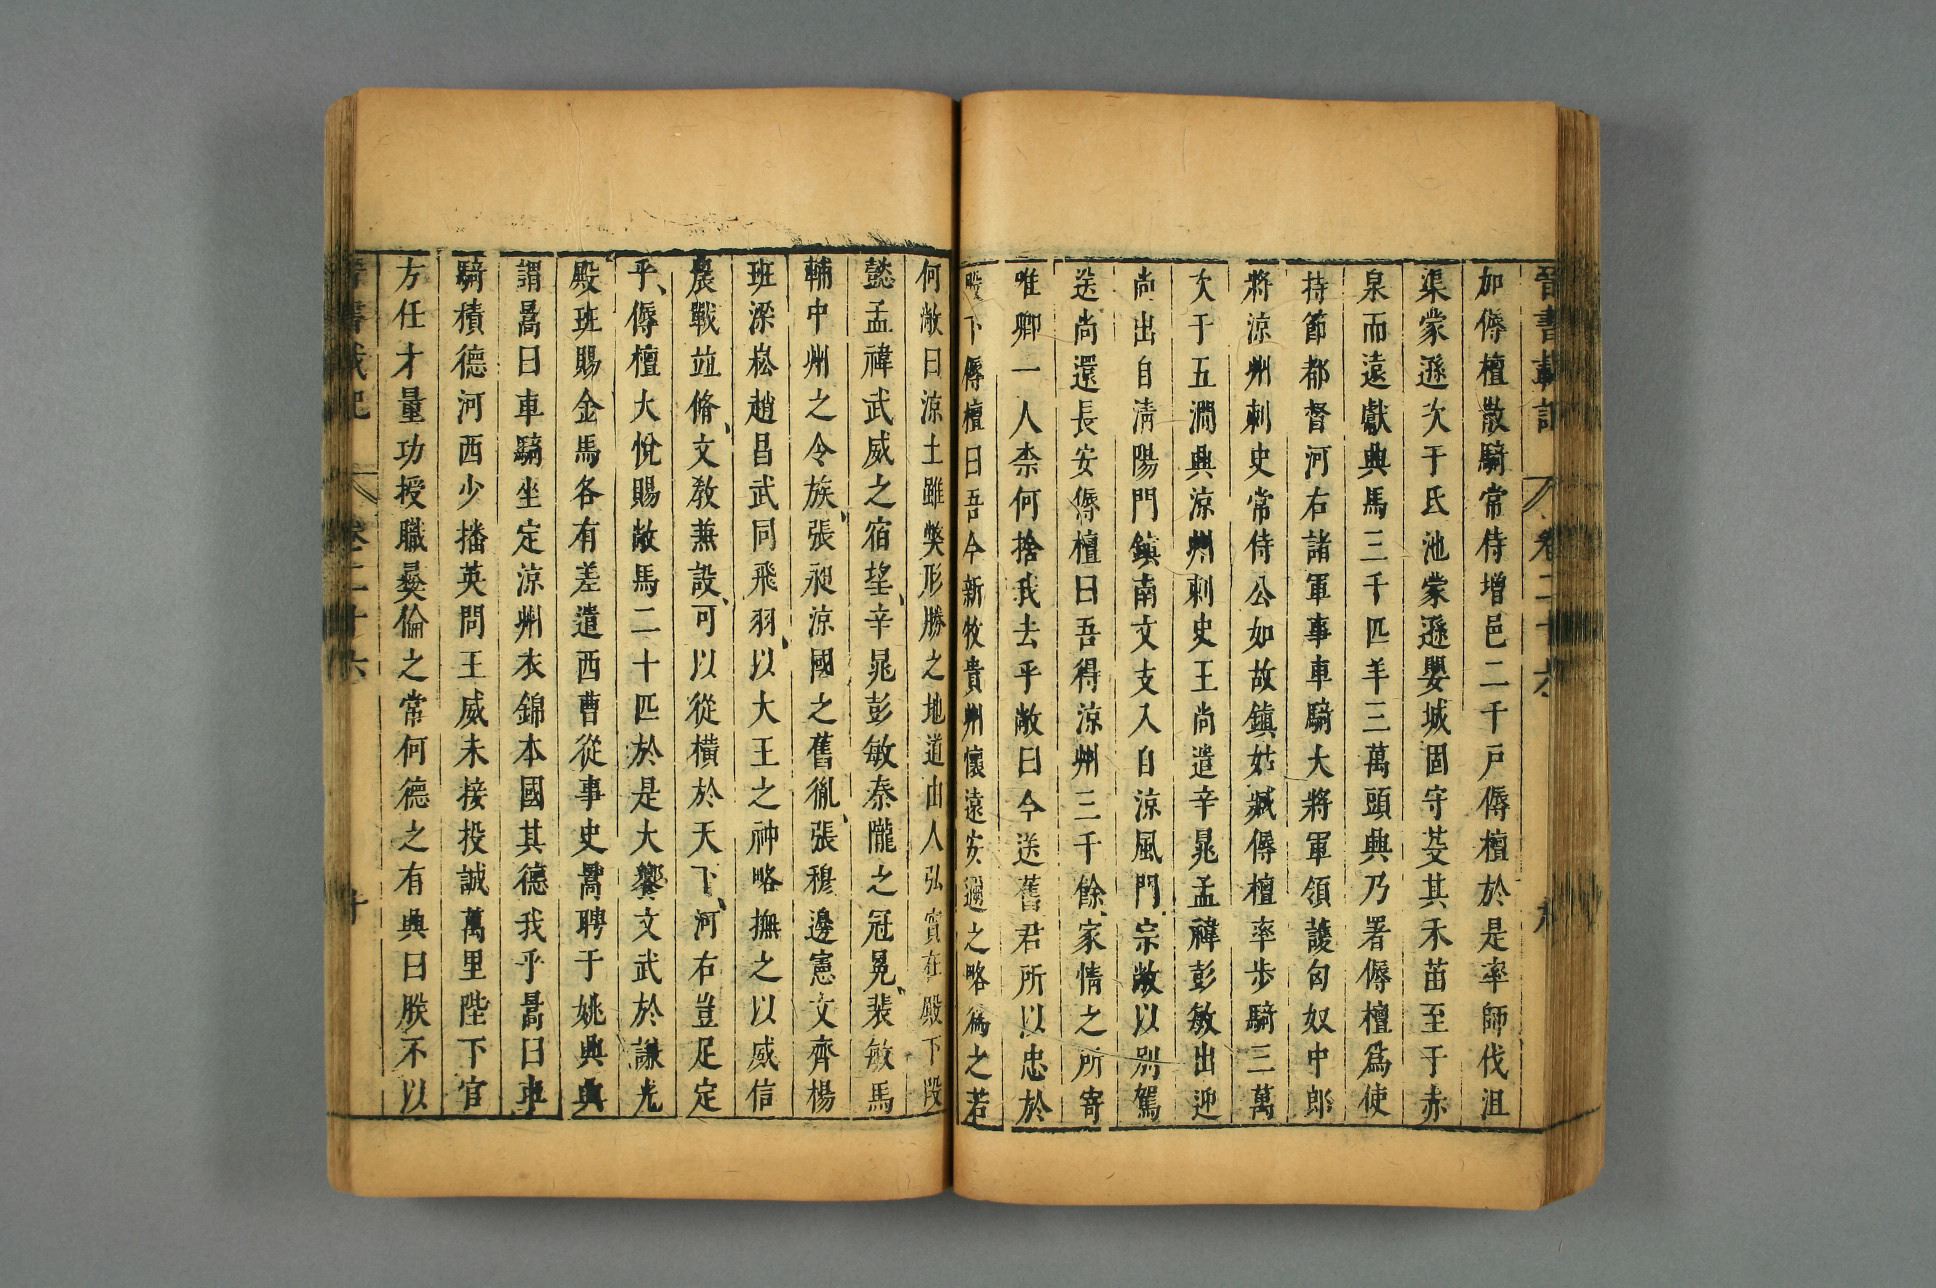 晉書載記 卷二十六 九
加傉檀散騎常侍增邑二千戶傉檀於是率師伐沮
渠蒙遜次于氐池蒙遜嬰城固守芟其禾苗至于赤
泉而還獻興馬三千匹羊三萬頭興乃署傉檀爲使
持節都督河右諸軍事車騎大將軍領護匈奴中郎
將涼州刺史常侍公如故鎮姑臧傉檀率步騎三萬
次于五澗興涼州刺史王尚遣辛晁孟禕彭敏出迎
尚出自清陽門鎮南文支入自涼風門宗敞以別駕
送尚還長安傉檀曰吾得涼州三千餘家情之所寄
唯卿一人柰何捨我去乎敞曰今送舊君所以忠於
殿下傉檀曰吾今新牧貴州懷遠安邇之略爲之若
何敞曰涼土雖獘形勝之地道由人弘實在殿下段
懿孟禕武威之宿望辛晁彭敏秦隴之冠冕裴敏馬
輔中州之令族張昶涼國之舊胤張穆邊憲文齊楊
班梁崧趙昌武同飛羽以大王之神略撫之以威信
農戰竝脩文教兼設可以從橫於天下河右豈足定
乎傉檀大悅賜敞馬二十匹於是大饗文武於謙光
殿班賜金馬各有差遣西曹從事史暠聘于姚興興
謂暠曰車騎坐定涼州衣錦本國其德我乎暠曰車
騎積德河西少播英問王威未接投誠萬里陛下官
方任才量功授職彜倫之常何德之有興曰朕不以
晉書載記 卷二十六 十